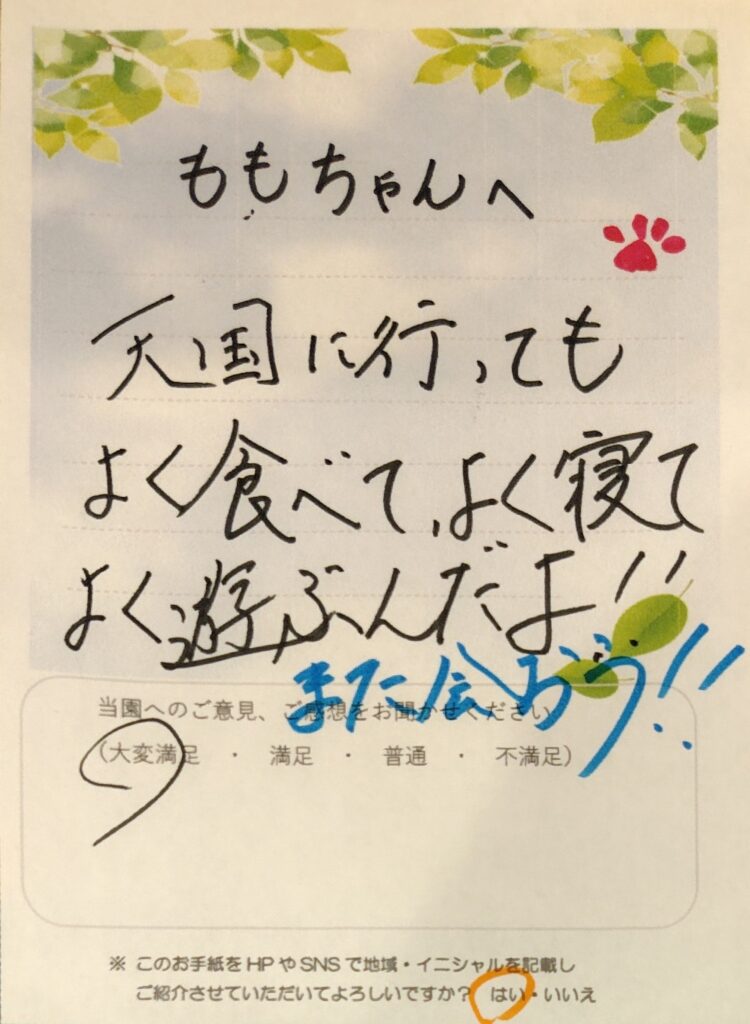 ももちゃんへ
天国に行っても
よく食べて、よく寝て
よく遊ぶんだよ!!
また会おう!!
当園へのご意見、ご感想をお聞かせください
(大変満足 ・ 満足 ・ 普通 ・ 不満足)
※ このお手紙をHPやSNSで地域・イニシャルを記載し
ご紹介させていただいてよろしいですか? はい・いいえ